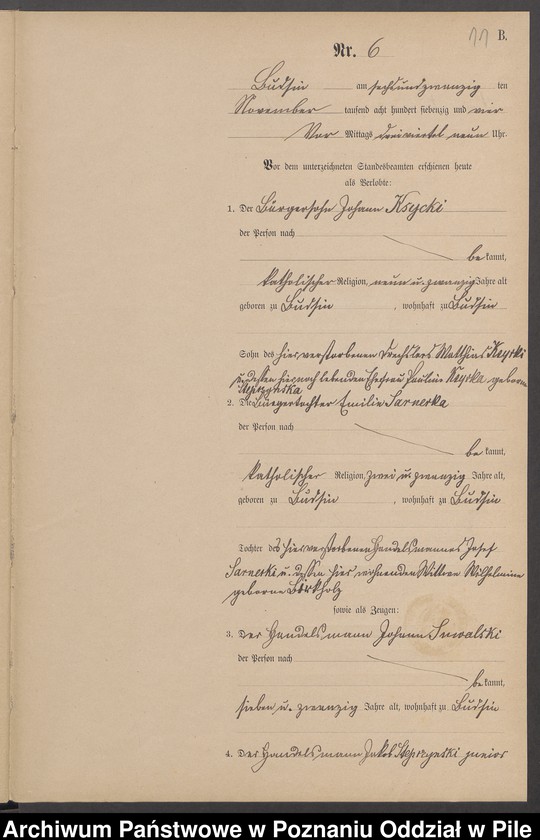 11 B.
Nr. 6
Budsin am sechsundzwanzig ten
November tausend acht hundert siebenzig und vier
Vor Mittags dreiviertel neun Uhr.
Vor dem unterzeichneten Standesbeamten erschienen heute
als Verlobte:
1. Der Bürgersohn Johann Ksycki
der Person nach
bekannt,
katholischer Religion, neun u. zwanzig Jahre alt
geboren zu Budsin, wohnhaft zu Budsin
Sohn des hier verstorbenen Drechslers Matthias Ksycki
u. dessen hier noch lebenden Ehefrau Pauline geborene
2. Die Bürgertochter Emilie Sarnecka
der Person nach
bekannt,
katholischer Religion, zwei u. zwanzig Jahre alt,
geboren zu Budsin, wohnhaft zu Budsin
Tochter des hier verstorbenen Handelsmannes Josef
Sarnecki u. dessen hier wohnenden Wittwe Wilhelmine
geborene Birkholz
sowie als Zeugen:
3. Der Handelsmann Johann Suwalski
der Person nach
bekannt,
sieben u. zwanzig Jahre alt, wohnhaft zu Budsin
4. Der Handelsmann Jakob
Archiwum Państwowe w Poznaniu Oddział w Pile